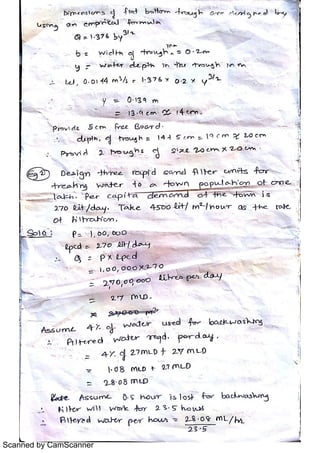 Dimensions of flat bottom trough are designed by
using an emprical formula
Q = 1.376 by^3/2
b = width of trough in m = 0.2m
y = water depth in the trough in m
∴ Let, 0.0144 m³/s = 1.376 × 0.2 × y^3/2
y = 0.139 m
= 13.9 cm ≈ 14 cm.
Provide 5 cm Free Board.
∴ depth, of trough = 14 + 5 cm = 19 cm ≈ 20 cm
∴ Provid 2 troughs of size 20cm × 20 cm.
Design three rapid sand filter units for
treating water to a town population of one
lakh. Per capita demand of the town is
270 lit/day. Take 4500 lit/m²/hour as the rate
of filtration.
Soln: P = 1,00,000
lpcd = 270 lit/day
∴ Q = P × lpcd
= 1,00,000×270
= 2,70,00,000 litres per day
= 27 MLD.
Assume 4% of water used for backwashing
∴ Filtered water reqd. per day.
= 4% of 27MLD + 27 MLD
= 1.08 MLD + 27 MLD
= 28.08 MLD
Assume 0.5 hour is lost for backwashing
∴ Filter will work for 23.5 hours
∴ Filtered water per hour = 28.08 ML/h
23.5
Scanned by CamScanner